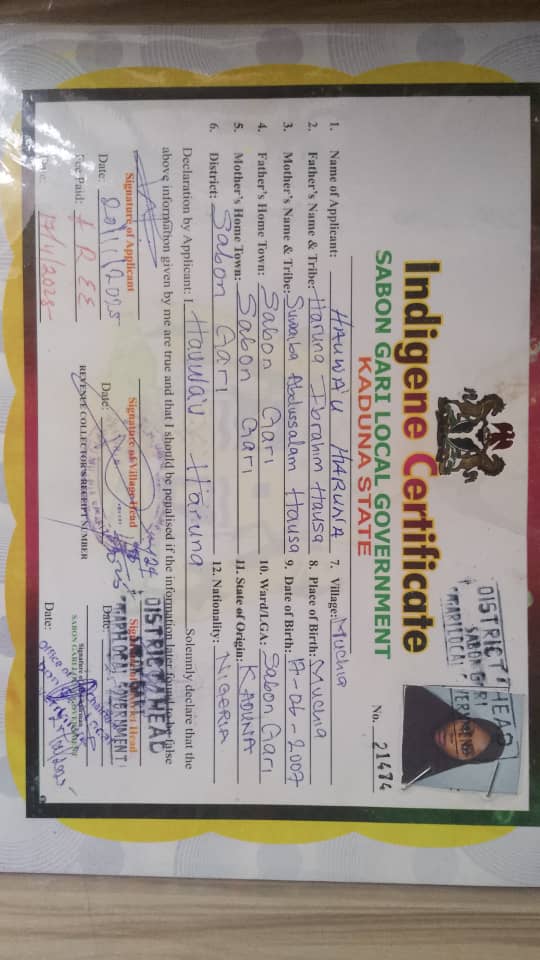 Indigene Certificate
SABON GARI LOCAL GOVERNMENT
KADUNA STATE
DISTRICT HEAD
SABON GARI
No. 21474
1. Name of Applicant: HAUWA'U HARUNA
2. Father's Name & Tribe: Haruna Ibrahim Hausa
3. Mother's Name & Tribe: Suwaiba Abdussalam Hausa
4. Father's Home Town: Sabon Gari
5. Mother's Home Town: Sabon Gari
6. District: Sabon Gari
7. Village: Muchia
8. Place of Birth: Muchia
9. Date of Birth: -06-2007
10. Ward/LGA: Sabon Gari
11. State of Origin: KADUNA
12. Nationality: NIGERIA
Declaration by Applicant: I, Hauwau Haruna Solemnly declare that the
above information given by me are true and that I should be penalised if the information later found to be false
DISTRICT HEAD
Signature of Applicant
Signature of Village Head
Date: 20/11/2025
Date:
Date:
Fee Paid: FREE
REVENUE COLLECTOR'S RECEIPT NUMBER
SABON GARI LOCAL GOVERNMENT
Date:
Office of